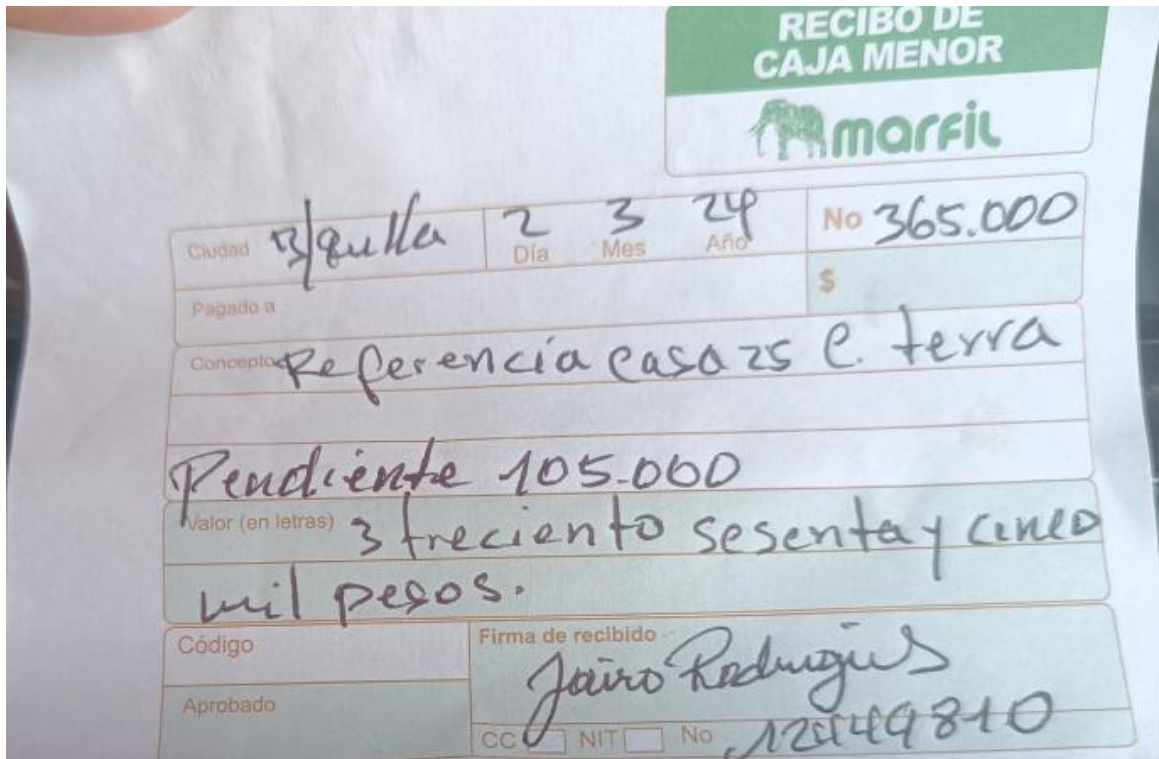 RECIBO DE
CAJA MENOR
marfil
Ciudad B/quilla 2 3 24 No 365.000
Día Mes Año
Pagado a $
Concepto Referencia casa 25 C. terra
Pendiente 105.000
Valor (en letras) 3 treciento sesenta y cinco
mil pesos.
Código Firma de recibido
Jairo Rodrigues
Aprobado
CC NIT No 12449810